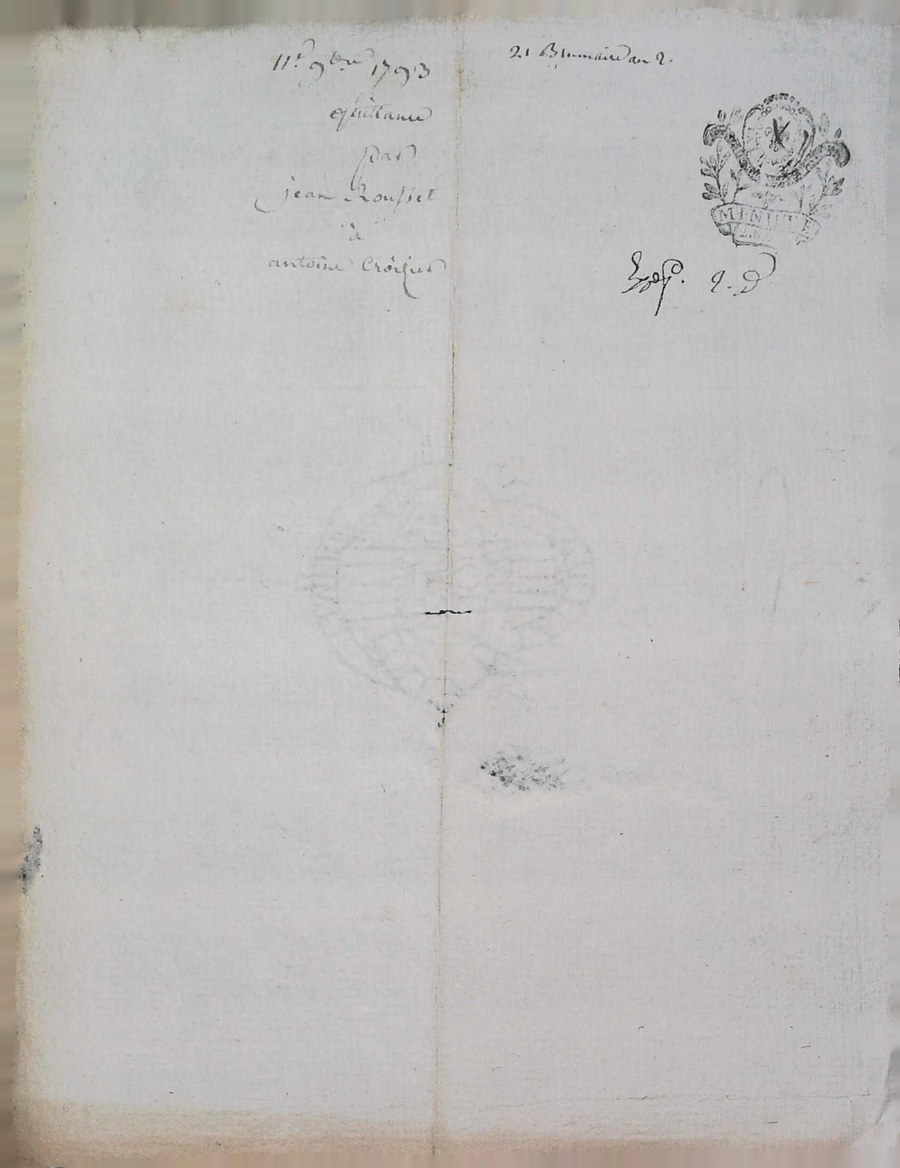 11e 9bre 1793
quittance
par
jean Rousset
à
antoine Croizier
21 Brumaire an 2.
MINUTE
Exp. 2. d